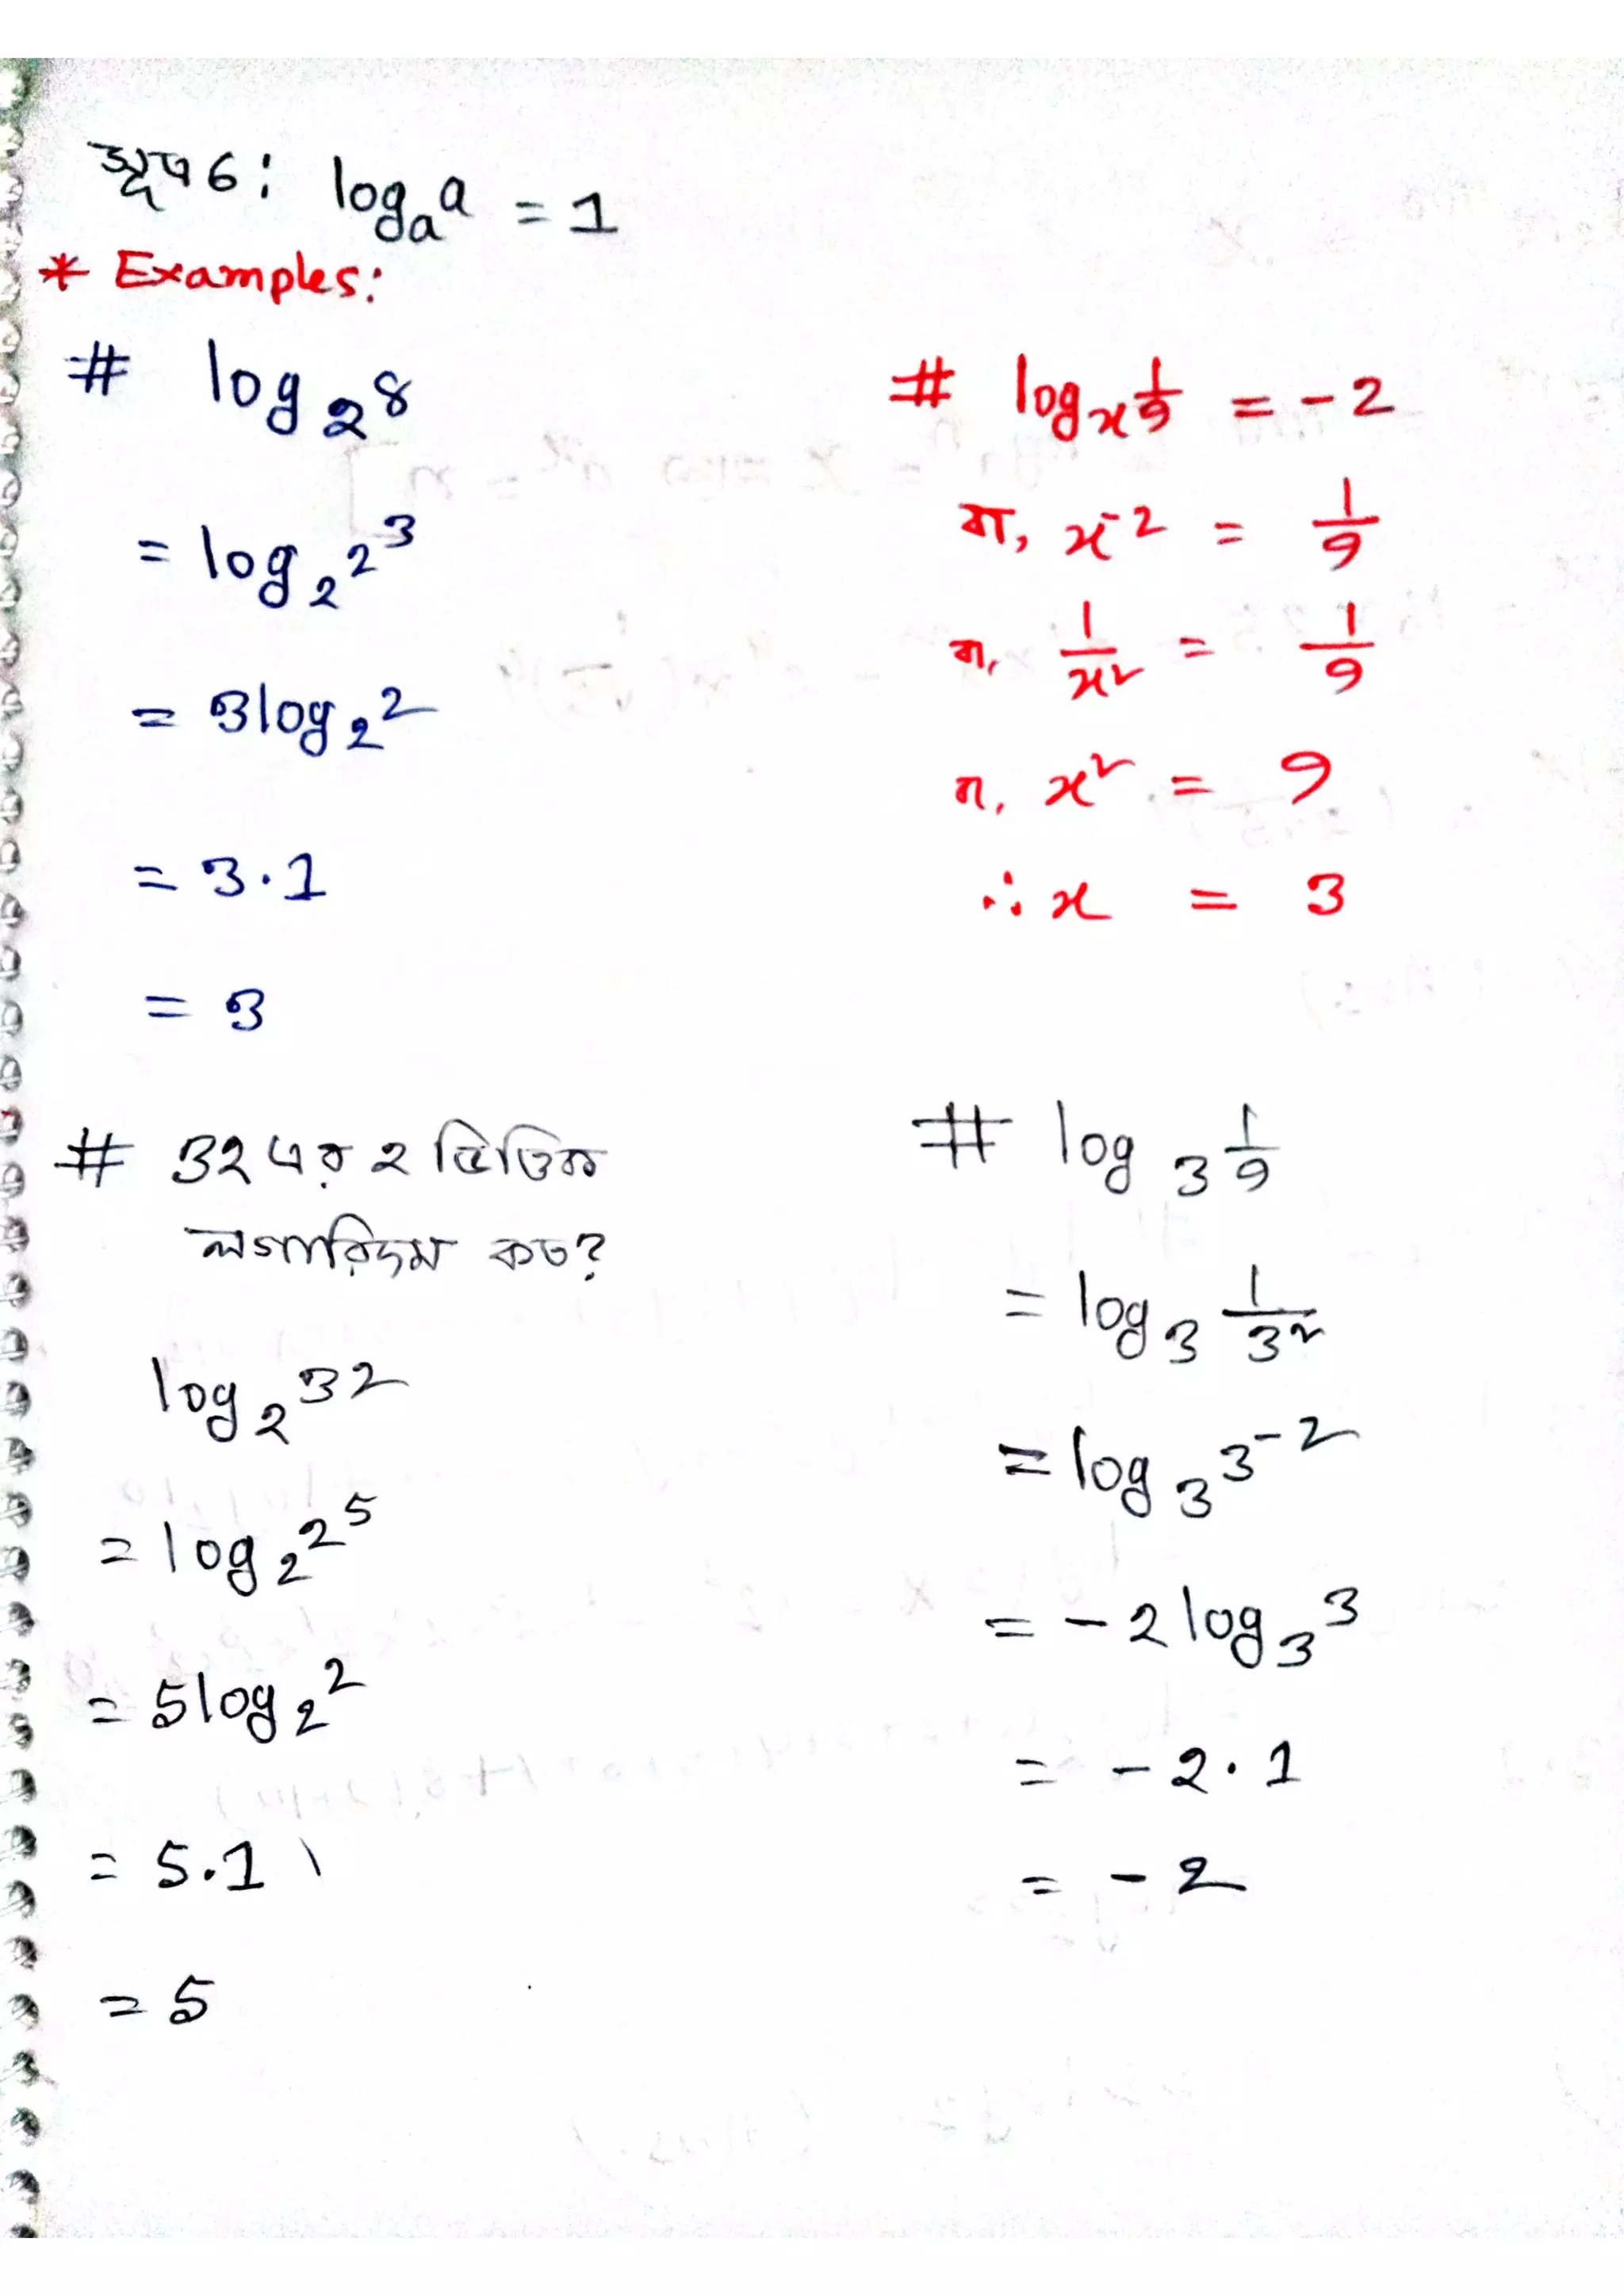 সূত্র 6: logₐa = 1
* Examples:
# log₂8
= log₂2³
= 3log₂2
= 3·1
= 3
# logₓ1/9 = -2
বা, x⁻² = 1/9
বা, 1/x² = 1/9
বা, x² = 9
∴ x = 3
# 32 এর ২ ভিত্তিক
লগারিদম কত?
log₂32
= log₂2⁵
= 5log₂2
= 5.1
= 5
# log₃1/9
= log₃1/3²
= log₃3⁻²
= -2log₃3
= -2·1
= -2